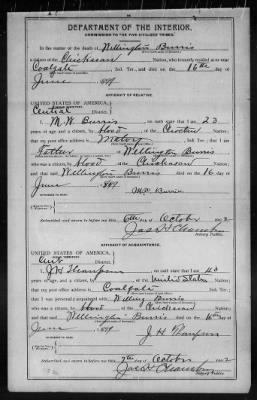 DEPARTMENT OF THE INTERIOR.
COMMISSION TO THE FIVE CIVILIZED TRIBES.
In the matter of the death of Wellington Burris
a citizen of the Chickasaw Nation, who formerly resided at or near
Coalgate, Ind. Ter., and died on the 16th day of
June, 1899
AFFIDAVIT OF RELATIVE.
UNITED STATES OF AMERICA,
INDIAN TERRITORY,
Central District.
I, M.W. Burris, on oath state that I am 23
years of age and a citizen, by blood, of the Choctaw Nation;
that my post office address is, Ind. Ter.; that I am
Father of Wellington Burris
who was a citizen, by blood, of the Chickasaw Nation;
and that said Wellington Burris died on the 16 day of
June, 1899
M.W. Burris
Subscribed and sworn to before me this 6th day of October 1902
Notary Public.
AFFIDAVIT OF ACQUAINTANCE.
UNITED STATES OF AMERICA,
INDIAN TERRITORY,
Cent District.
I, J.H. Thompson, on oath state that I am 40
years of age, and a citizen, by of the United States
that my post office address is Coalgate, Ind. Ter.;
that I was personally acquainted with Burris
who was a citizen, by blood, of the Chickasaw Nation;
and that said Wellington Burris died on the 16th day of
June, 1899
J.H. Thompson
Subscribed and sworn to before me this 7th day of October 1902
Notary Public.